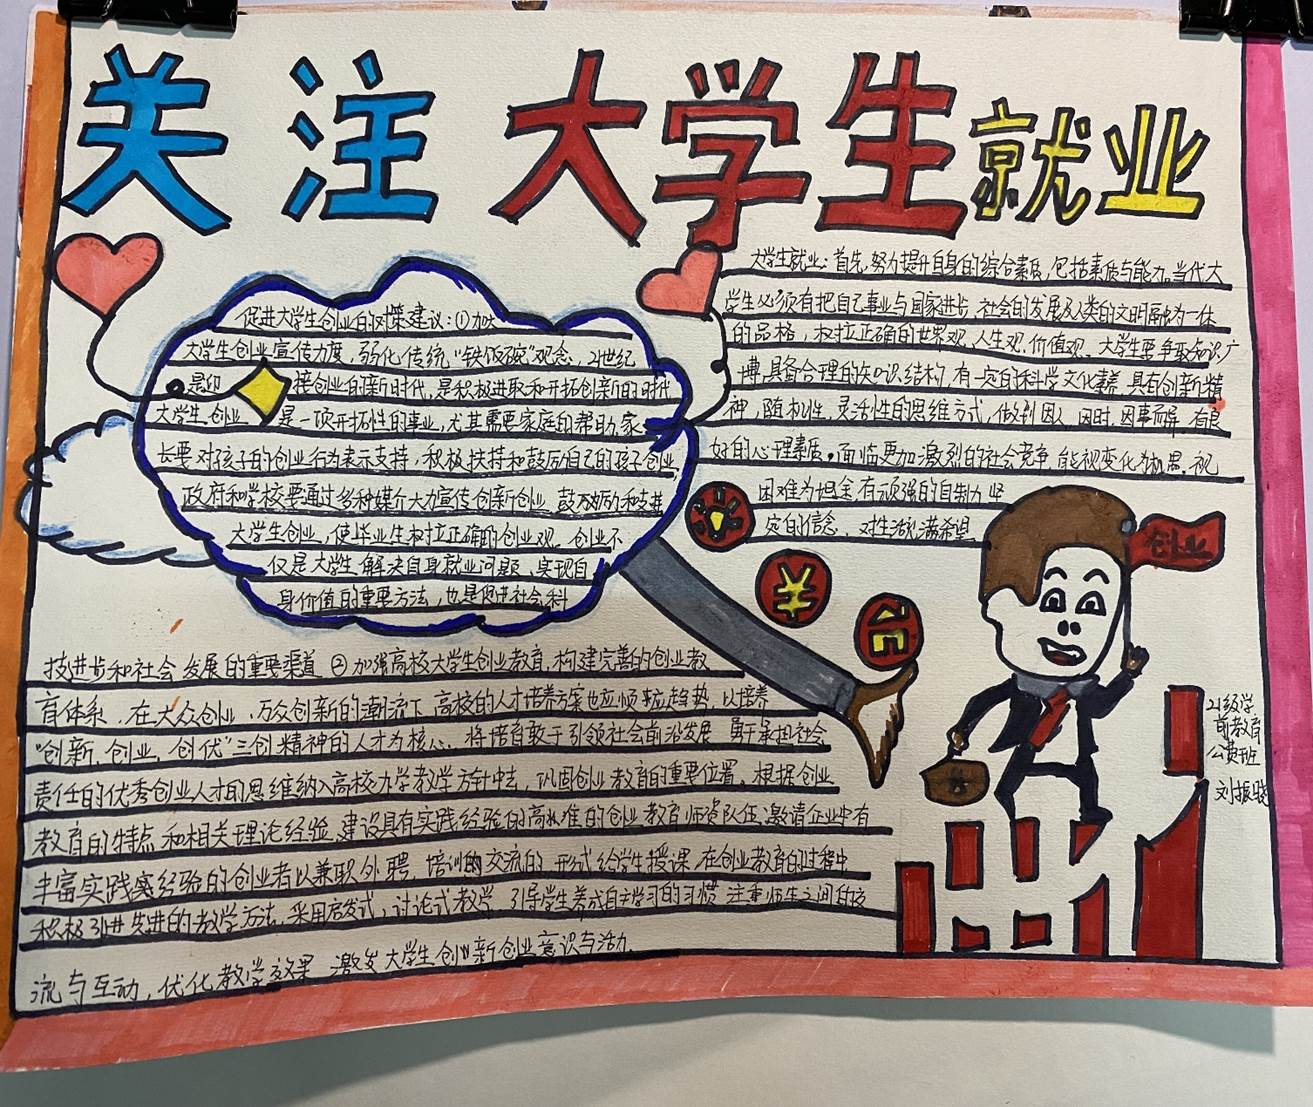 关注大学生就业
促进大学生创业的对策建议:①加大
大学生创业宣传力度,弱化传统“铁饭碗”观念,21世纪
是迎接创业的新时代,是积极进取和开拓创新的时代
大学生创业是一项开拓性的事业,尤其需要家庭的帮助,家
长要对孩子的创业行为表示支持,积极扶持和鼓励自己的孩子创业
政府和学校要通过多种媒介大力宣传创新创业,鼓励和支持
大学生创业,使毕业生树立正确的创业观。创业不
仅是大学生解决自身就业问题、实现自
身价值的重要方法,也是促进社会科
技进步和社会发展的重要渠道 ②加强高校大学生创业教育,构建完善的创业教
育体系,在大众创业,万众创新的潮流下,高校的人才培养方案也应顺应趋势,以培养
“创新、创业、创优”三创精神的人才为核心,将培育敢于引领社会前沿发展 勇于承担社会
责任的优秀创业人才的思维纳入高校办学教学方针中去,巩固创业教育的重要位置、根据创业
教育的特点和相关理论经验,建设具有实践经验的高水准的创业教育师资队伍,邀请企业中有
丰富实践经验的创业者以兼职外聘,培训的交流的形式给学生授课,在创业教育的过程中
积极引进先进的教学方法,采用启发式,讨论式教学,引导学生养成自主学习的习惯 注重师生之间的交
流与互动,优化教学效果 激发大学生创业新创业意识与活力.
大学生就业:首先,努力提升自身的综合素质,包括素质与能力。当代大
学生必须有把自己事业与国家进步,社会的发展及人类的文明融为一体
的品格,树立正确的世界观,人生观,价值观。大学生要争取知识广
博,具备合理的知识结构,有一定的科学文化素养,具有创新精
神,随机性,灵活性的思维方式,做到因人,因时,因事而异,有良
好的心理素质。面临更加激烈的社会竞争,能视变化为机遇,视
困难为坦途 有顽强的自制力 坚
定的信念,对生活充满希望
¥
创业
21级学
前教育
公费班
刘振晓